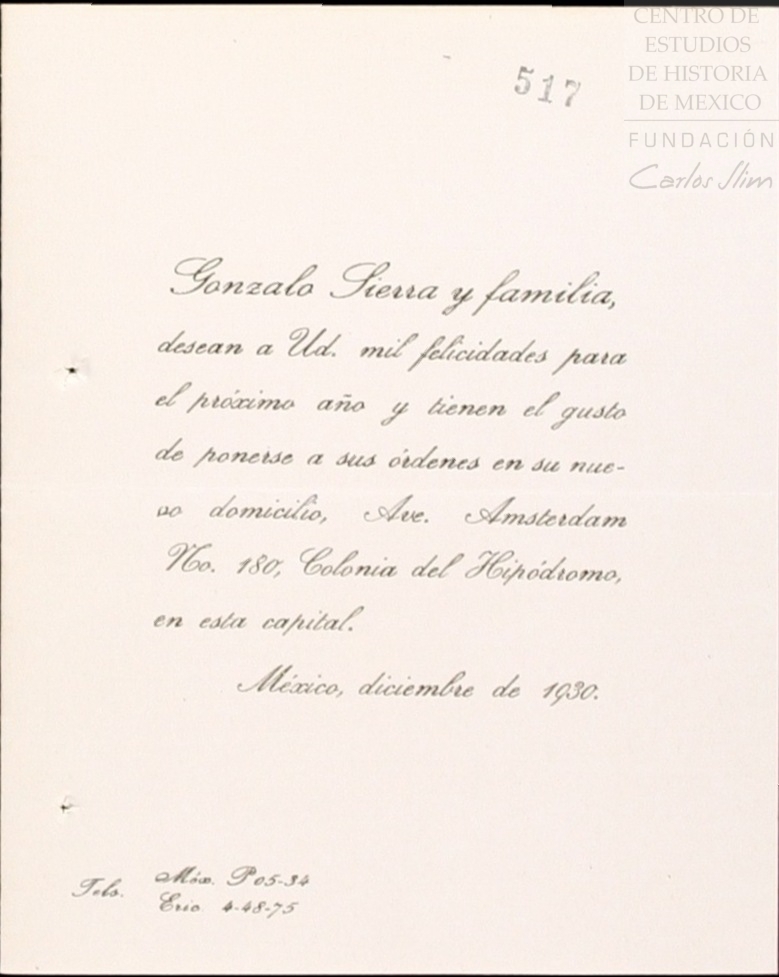 CENTRO DE
ESTUDIOS
DE HISTORIA
DE MEXICO
FUNDACIÓN
Carlos Slim
517
Gonzalo Sierra y familia,
desean a Ud. mil felicidades para
el próximo año y tienen el gusto
de ponerse a sus órdenes en su nue-
vo domicilio, Ave. Amsterdam
No. 180, Colonia del Hipódromo,
en esta capital.
México, diciembre de 1930.
Tels. Méx. P 05-34
Eric. 4-48-75